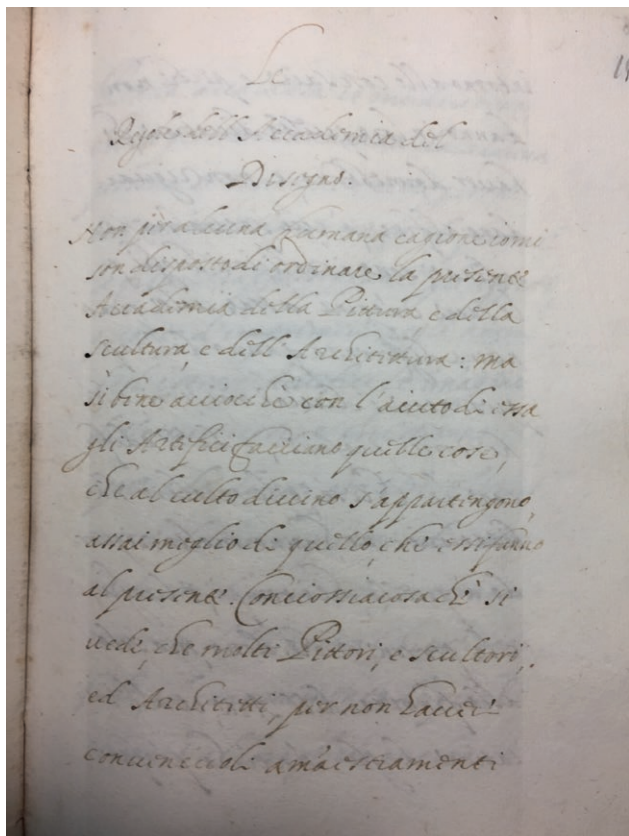 Le
Regole dell'Accademia del
Disegno.
Non per alcuna humana cagione io mi
son disposto di ordinare la presente
Accademia della Pittura, e della
scultura, e dell'Architettura: ma
si bene acciochè con l'aiuto di essa
gli Artefici facciano quelle cose,
che al culto divino s'appartengono,
assai meglio di quello, che essi fanno
al presente. Conciossiacosachè si
vede, che molti Pittori, e scultori,
ed Architetti, per non haver
convenevoli amaestramenti